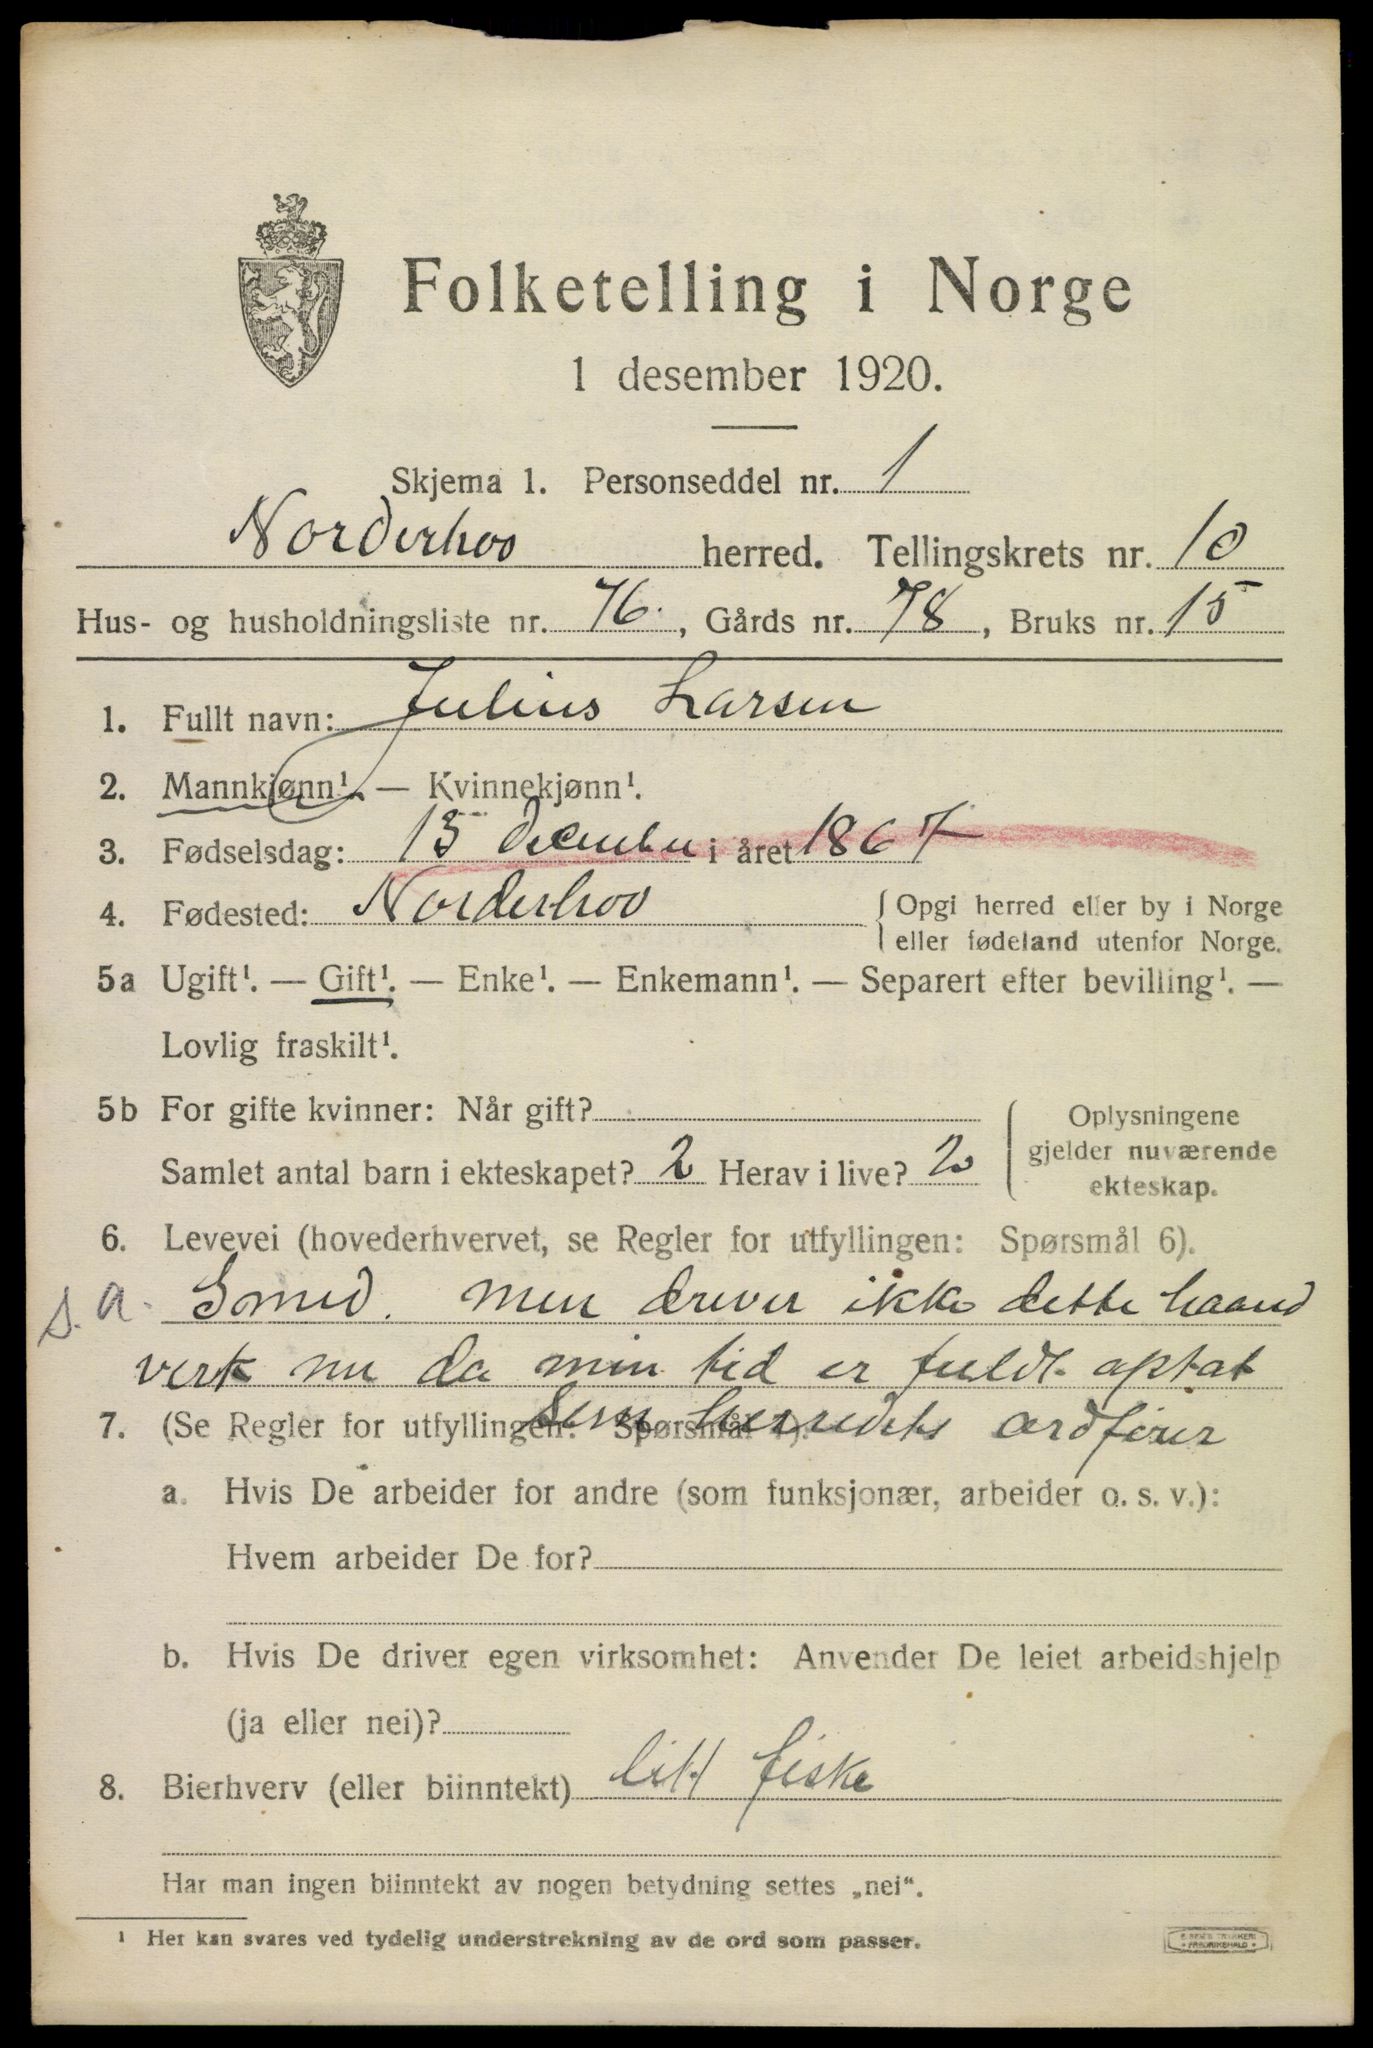 Folketelling i Norge
1 desember 1920.
Skjema 1. Personseddel nr. 1
Norderhov herred. Tellingskrets nr. 10
Hus- og husholdningsliste nr. 76. , Gårds nr. 78 , Bruks nr. 15
1. Fullt navn: Julius Larsen
2. Mannkjønn¹. — Kvinnekjønn¹.
3. Fødselsdag: 15 december i året 1867
4. Fødested: Norderhov { Opgi herred eller by i Norge
eller fødeland utenfor Norge.
5a Ugift¹. — Gift¹. — Enke¹. — Enkemann¹. — Separert efter bevilling¹. —
Lovlig fraskilt¹.
5b For gifte kvinner: Når gift?
Samlet antal barn i ekteskapet? 2 Herav i live? 2
Oplysningene
gjelder nuværende
ekteskap.
6. Levevei (hovederhvervet, se Regler for utfyllingen: Spørsmål 6).
s. a. Smed. men driver ikke dette haand
verk nu da min tid er fuldt optat
som herredets ordfører
7. (Se Regler for utfyllingen: Spørsmål 7).
a. Hvis De arbeider for andre (som funksjonær, arbeider o. s. v.):
Hvem arbeider De for?
b. Hvis De driver egen virksomhet: Anvender De leiet arbeidshjelp
(ja eller nei)?
8. Bierhverv (eller biinntekt) litt fiske
Har man ingen biinntekt av nogen betydning settes „nei“.
¹ Her kan svares ved tydelig understrekning av de ord som passer.